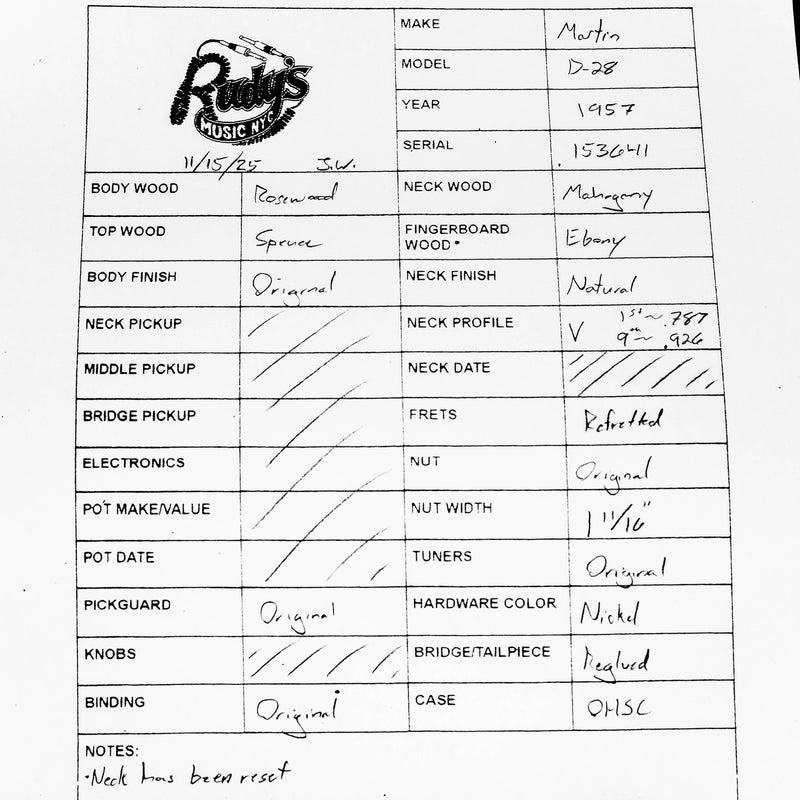 Rudy's
MUSIC NYC
11/15/25 J.W.
MAKE Martin
MODEL D-28
YEAR 1957
SERIAL 153641
BODY WOOD Rosewood
NECK WOOD Mahogany
TOP WOOD Spruce
FINGERBOARD
WOOD Ebony
BODY FINISH Original
NECK FINISH Natural
NECK PICKUP
NECK PROFILE V 1st ~ .787
9th ~ .926
MIDDLE PICKUP
NECK DATE
BRIDGE PICKUP
FRETS Refretted
ELECTRONICS
NUT Original
POT MAKE/VALUE
NUT WIDTH 1 11/16"
POT DATE
TUNERS Original
PICKGUARD Original
HARDWARE COLOR Nickel
KNOBS
BRIDGE/TAILPIECE Reglued
BINDING Original
CASE OHSC
NOTES:
·Neck has been reset